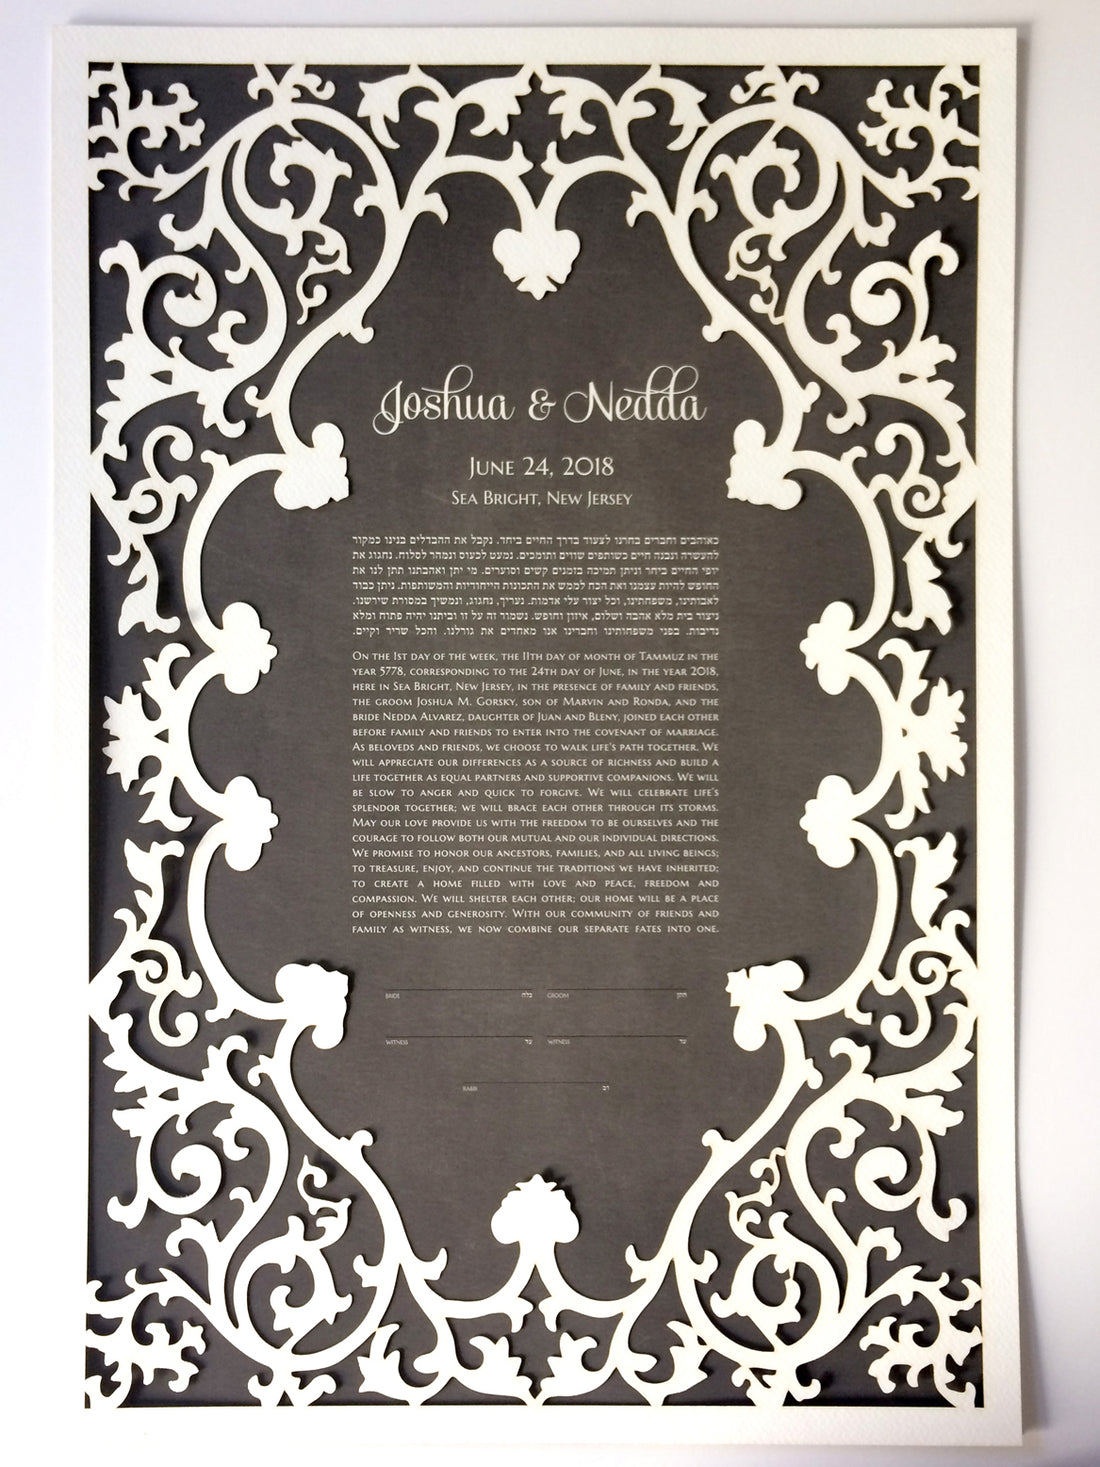 Joshua & Nedda
June 24, 2018
Sea Bright, New Jersey
כאוהבים וחברים בחרנו לצעוד בדרך החיים ביחד. נקבל את ההבדלים בנינו כמקור
להעשרה ונבנה חיים כשותפים שווים ותומכים. נמעט לכעוס ונמהר לסלוח. נחגוג את
יופי החיים ביחד וניתן תמיכה בזמנים קשים וסוערים. מי יתן ואהבתנו תתן לנו את
החופש להיות עצמנו ואת הכח לממש את התכונות הייחודיות והמשותפות. ניתן כבוד
לאבותינו, משפחתינו, וכל יצור עלי אדמות. נעריך, נחגוג, ונמשיך במסורת שירשנו.
ניצור בית מלא אהבה ושלום, איזון וחופש. נשמור זה על זו וביתנו יהיה פתוח ומלא
נדיבות. בפני משפחותינו וחברינו אנו מאחדים את גורלנו. והכל שריר וקיים.
On the 1st day of the week, the 11th day of month of Tammuz in the
year 5778, corresponding to the 24th day of June, in the year 2018,
here in Sea Bright, New Jersey, in the presence of family and friends,
the groom Joshua M. Gorsky, son of Marvin and Ronda, and the
bride Nedda Alvarez, daughter of Juan and Bleny, joined each other
before family and friends to enter into the covenant of marriage.
As beloveds and friends, we choose to walk life's path together. We
will appreciate our differences as a source of richness and build a
life together as equal partners and supportive companions. We will
be slow to anger and quick to forgive. We will celebrate life's
splendor together; we will brace each other through its storms.
May our love provide us with the freedom to be ourselves and the
courage to follow both our mutual and our individual directions.
We promise to honor our ancestors, families, and all living beings;
to treasure, enjoy, and continue the traditions we have inherited;
to create a home filled with love and peace, freedom and
compassion. We will shelter each other; our home will be a place
of openness and generosity. With our community of friends and
family as witness, we now combine our separate fates into one.
Bride כלה Groom חתן
Witness עד Witness עד
Rabbi רב